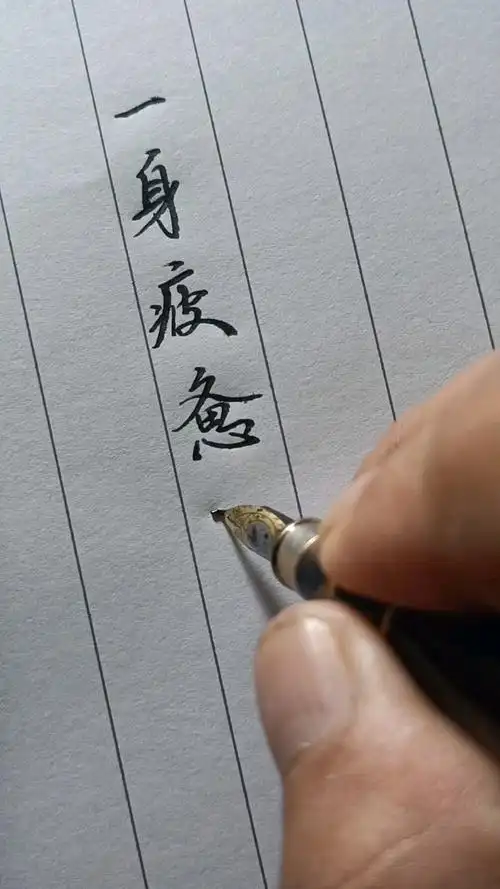 一身疲惫